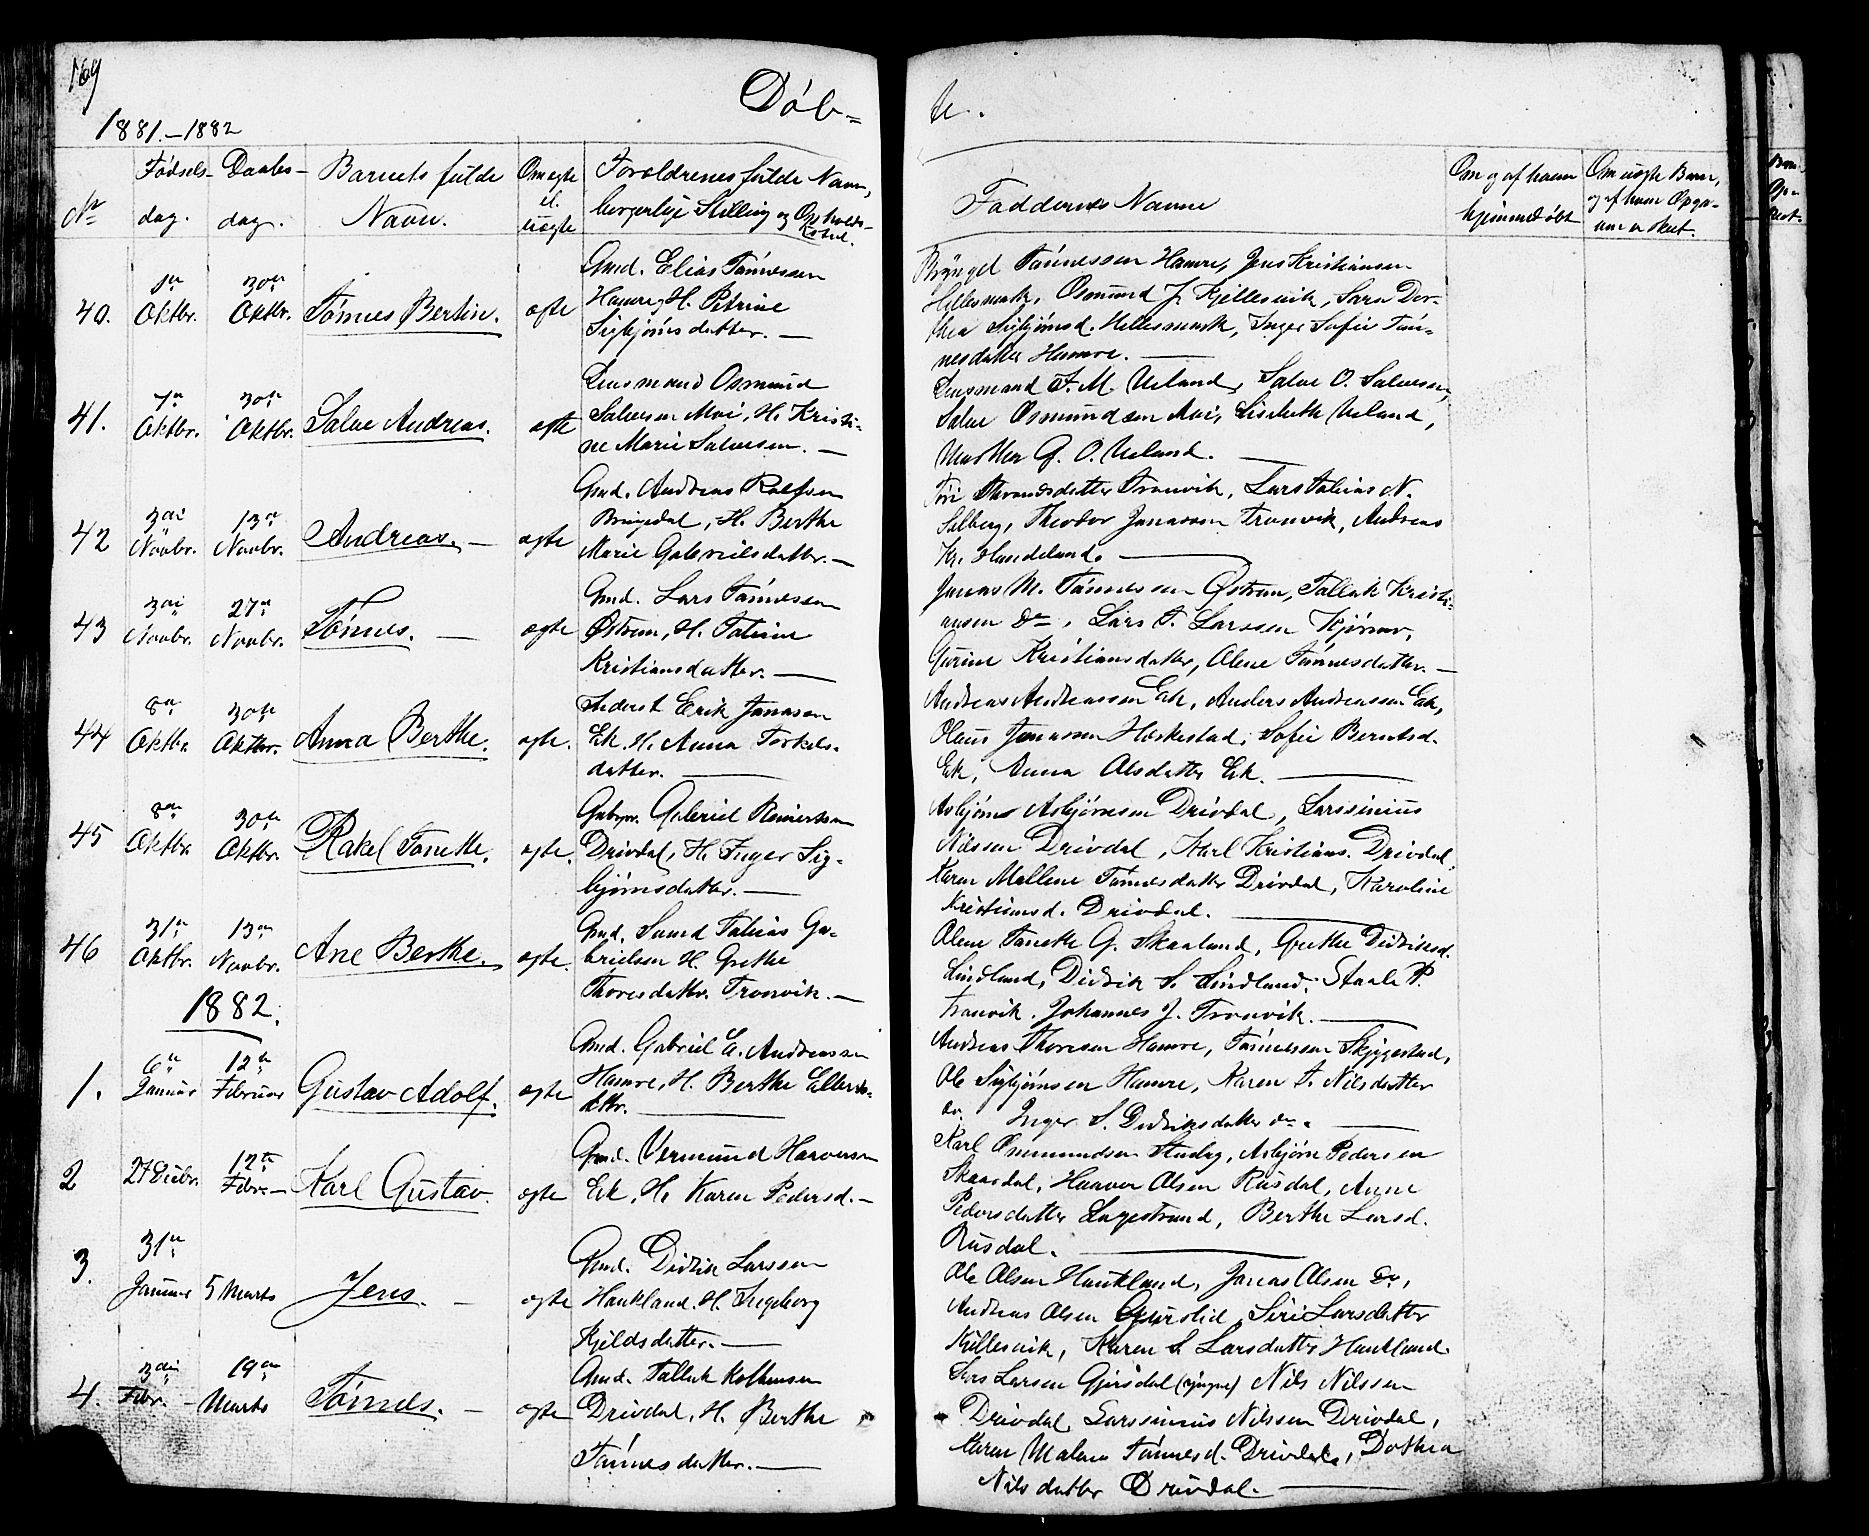 169
Døb-
te.
1881.-1882
No
Fødsels-
dag.
Daabs-
dag.
Barnets fulde
Navn.
Om ægte
el.
uægte
Forældrenes fulde Navn,
borgerlige Stilling og Opholds-
sted.
Faddernes Navne
Om og af hvem
hjemmedøbt
Om uægte Barn,
og af hvem Opga-
ven er skeet.
40.
1ste
Oktbr.
30te
Oktbr.
Tønnes Bertin.
ægte
Gmd. Elias Tønnessen
Hamre, H. Petrine
Sigbjørnsdatter. —
Tønnessen Hamre, Jens Kristiansen
Hellesmark, Osmund J. Kjellesvik, Sara Dor-
thea Sigbjørnsd. Hellesmark, Inger Sofie Tøn-
nesdatter Hamre. —
41.
7de
Oktbr.
30te
Oktbr.
Salve Andreas.
ægte
Lensmand Osmund
Salvesen Moi, H. Kristi-
ne Marie Salvesen. —
Lensmand T. M. Ueland, Salve O. Salvesen,
Salve Osmundsen Moi, Lisebeth Ueland,
Marthe G. O. Ueland. —
42
3die
Novbr.
13de
Novbr.
Andreas. —
ægte
Gmd. Andreas Rolfsen
Bringedal, H. Berthe
Marie Gabrielsdatter. —
Tronvik, Lars Tobias N.
Selberg, Theodor Jonassen Tronvik, Andreas
Kr. Handeland. —
43
3die
Novbr.
27de
Novbr.
Tønnes. —
ægte
Gmd. Lars Tønnessen
Østrem, H. Taline
Kristiansdatter. —
Jonas M. Tønnessen Østrem, Tallak Kristi-
ansen do, Lars T. Larssen
Gurine Kristiansdatter, Olene Tønnesdatter. —
44
8de
Oktbr.
30te
Oktbr.
Anna Berthe.
ægte.
Inderst Erik Jonasen
Eik. H. Anna Torkels-
datter. —
Andreas Andreassen Eik, Anders Andreassen Eik,
Olaus Jonassen Heskestad, Sofie Berntsd.
Eik, Anna Olsdatter Eik. —
45
8de
Oktbr.
30te
Oktbr.
Rakel Tonette.
ægte.
Gabriel Reinertsen
Drivdal, H. Inger Sig-
bjørnsdatter. —
Asbjørn Asbjørnsen Drivdal, Larssinius
Nilssen Drivdal, Karl Kristians. Drivdal,
Karen Mallene Tønnesdatter Drivdal, Karoline
Kristiansd. Drivdal. —
46
31te
Oktbr.
13de
Novbr.
Ane Berthe.
ægte.
Gmd. Svend Tobias Ga-
brielsen H. Grethe
Thoresdatter Tronvik. —
Olene Tonette G. Skaaland, Grethe Didriksd.
Lindland, Didrik S. Lindland, Staale P.
Tronvik. Johannes J. Tronvik. —
1882.
1.
6te
Januar
12te
Februar
Gustav Adolf.
ægte
Gmd. Gabriel E. Andreassen
Hamre, H. Berthe Ellevs-
dttr. —
Andreas Thoresen Hamre, Tønnessen Skjggestad,
Ole Sigbjørnsen Hamre, Karen T. Nilsdatter
do. Inger S. Didriksdatter do. —
2
27 Decbr.
12te
Febr. —
Karl Gustav.
ægte
Gmd. Vermund Haversen
Eik, H. Karen Pedersd. —
Karl Ommundsen Asbjørn Pedersen
Skaardal, Haaver Olsen Rusdal, Anne
Pedersdatter Lagestrand, Berthe Larsd.
Rusdal. —
3.
31te
Januar
5 Marts
Jens. —
ægte
Gmd. Didrik Larssen
Haukland. H. Ingeborg
Kjeldsdatter. —
Ole Olsen Haukland, Jonas Olsen do,
Andreas Olsen Siri Larsdatter
Kjellesvik, Karen S. Larsdatter Haukland.
4.
3die
Febr. —
19de
Marts
Tønnes. —
ægte
Gmd. Tallak
Drivdal, H. Berthe
Tønnesdatter. —
Lars Larsen Gjersdal (yngre) Nils Nilssen
Drivdal, Larssinius Nilssen Drivdal,
Karen Malene Tønnesd. Drivdal, Dothea
Nilsdatter Drivdal. —